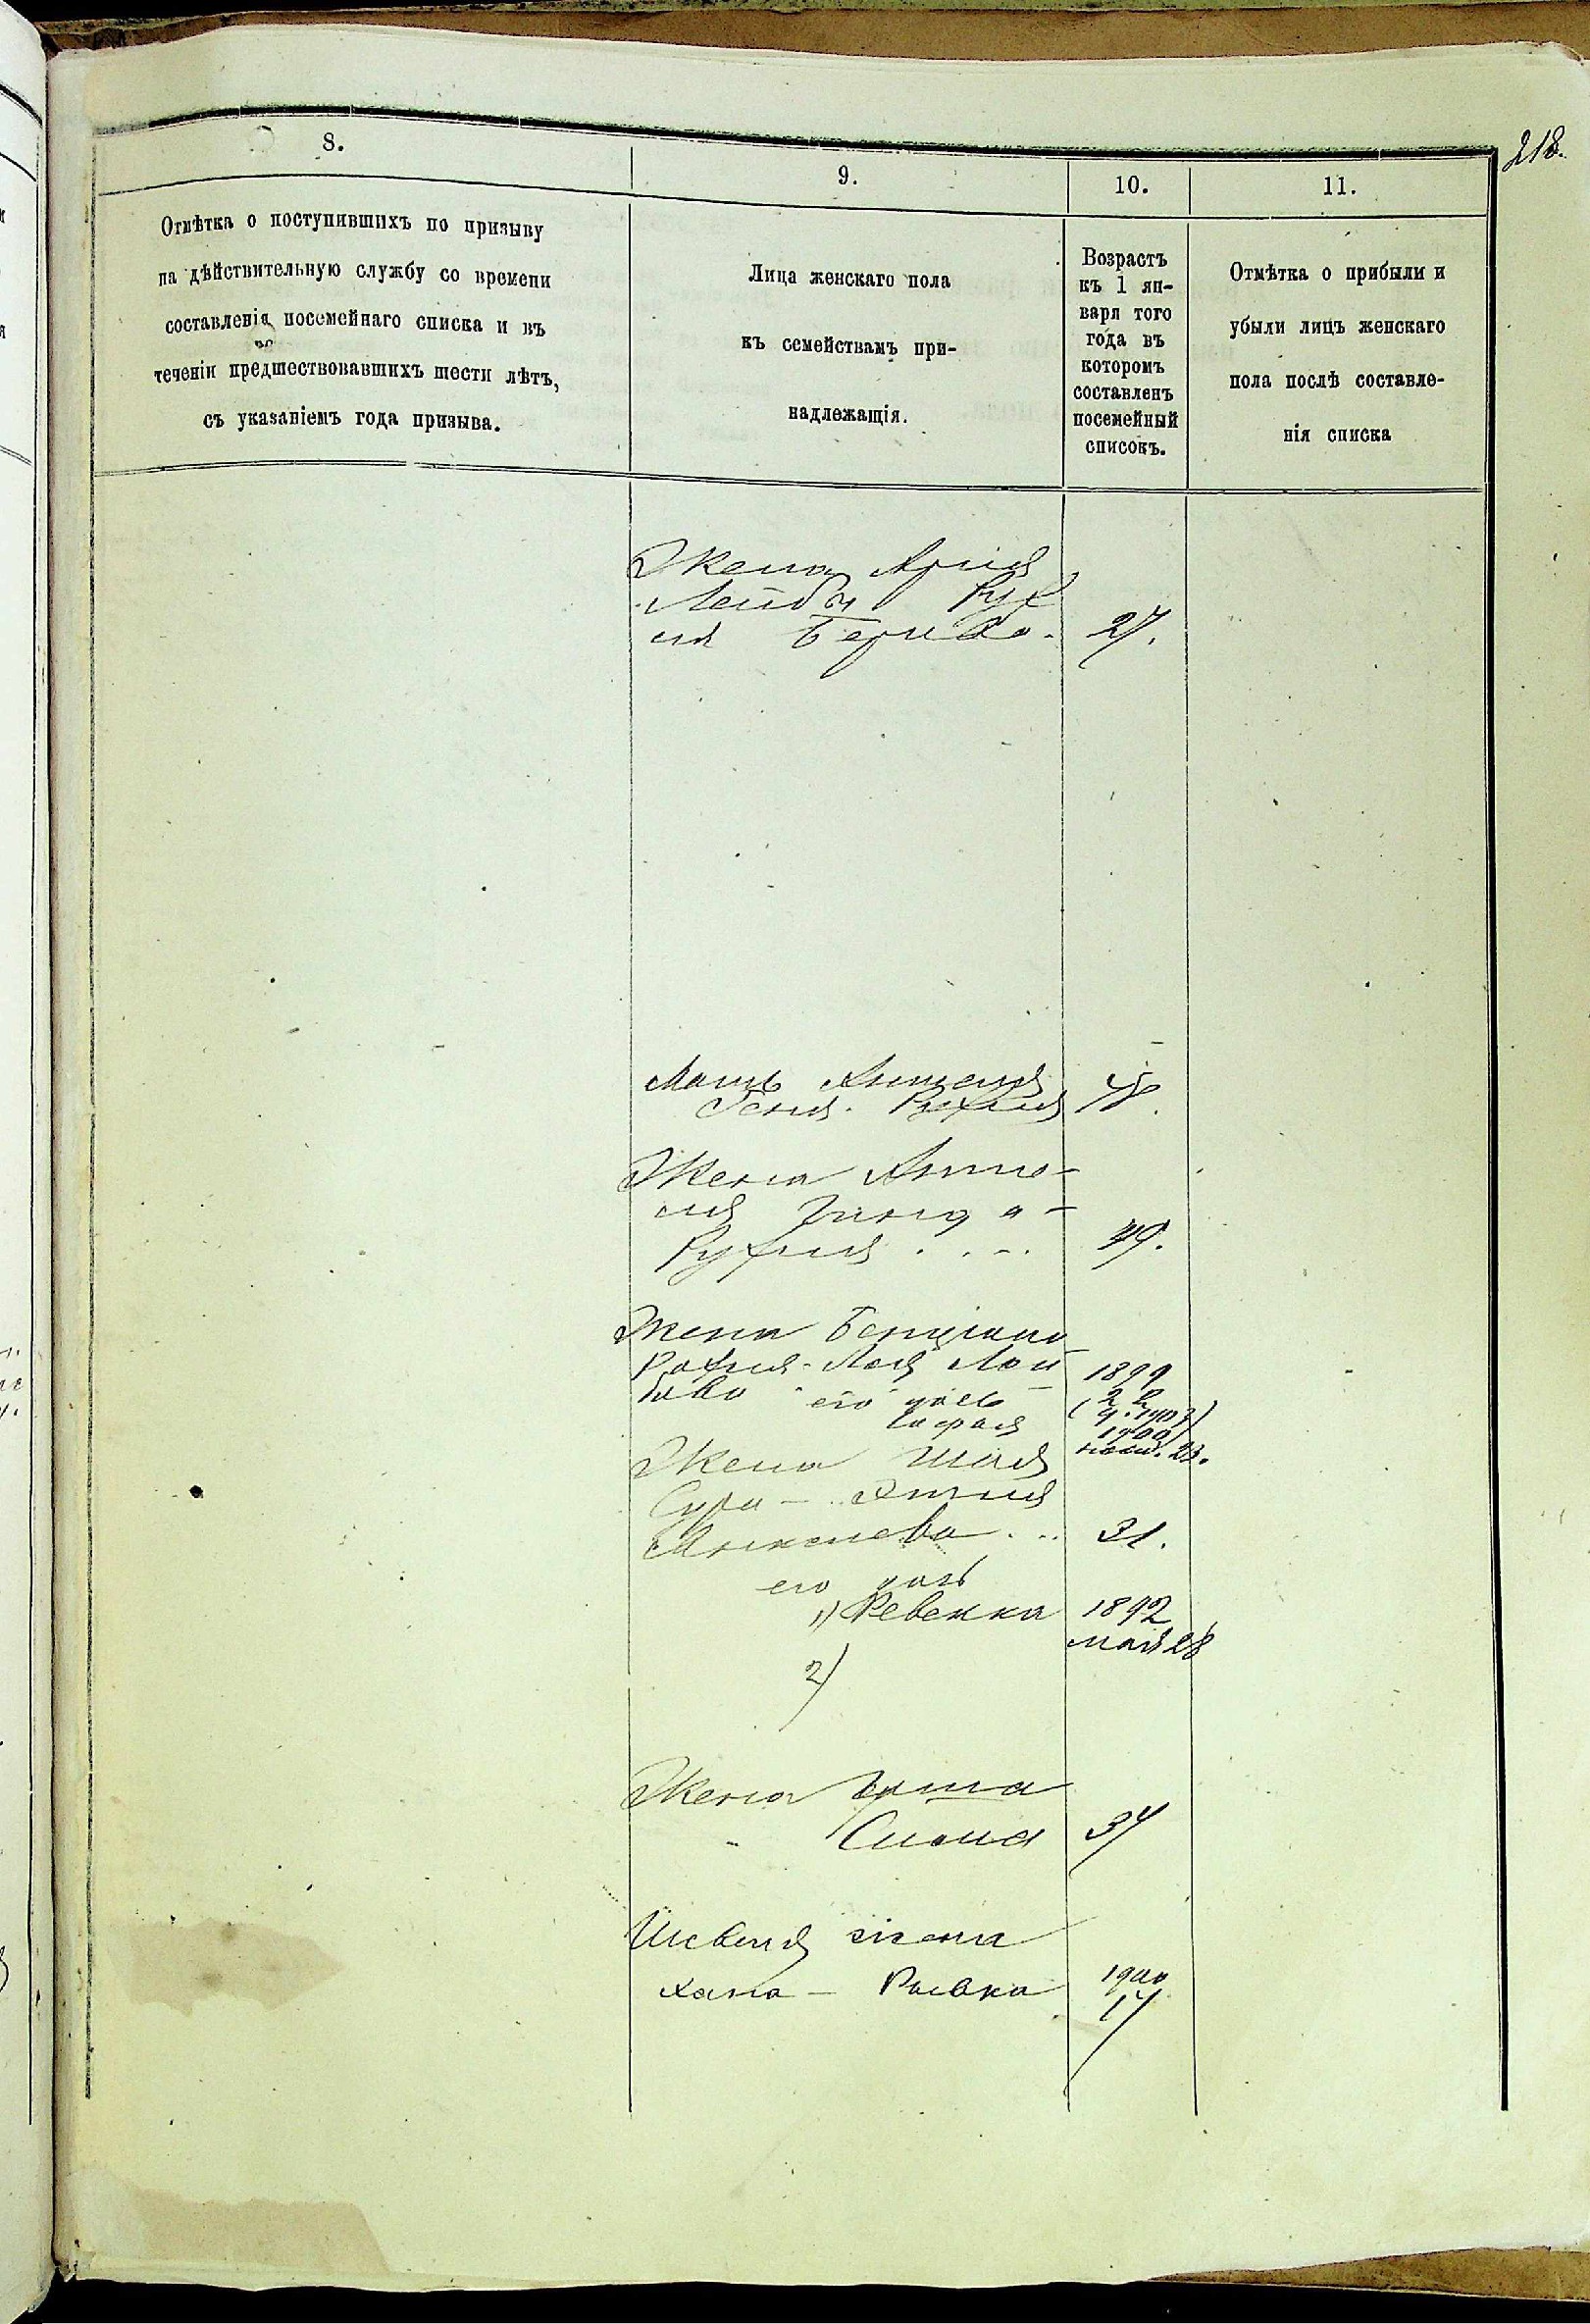 218.
8.
9.
10.
11.
Отмѣтка о поступившихъ по призыву
на дѣйствительную службу со времени
составленія посемейнаго списка и въ
теченіи предшествовавшихъ шести лѣтъ,
съ указаніемъ года призыва.
Лица женскаго пола
къ семействамъ при-
надлежащія.
Возрастъ
къ 1 ян-
варя того
года въ
которомъ
составленъ
посемейный
списокъ.
Отмѣтка о прибыли и
убыли лицъ женскаго
пола послѣ составле-
нія списка
Жена Арія
Лейбы Рух
ля Беркова. 27.
Мать Аншеля
Геня. Рухля
Жена Анше-
ля Гинда-
Рухля . . - . 49.
Жена Бенціана
Рахля-Лея Лей 1899
бова его дочь
1900
Жена Шая
нояб. 23.
Сура - Этля
31.
его дочь
1) Ревекка 1892
мая 28
2)
Жена Герша
" Сима 37
Шевеля жена
Хана - Рывка 1900
17